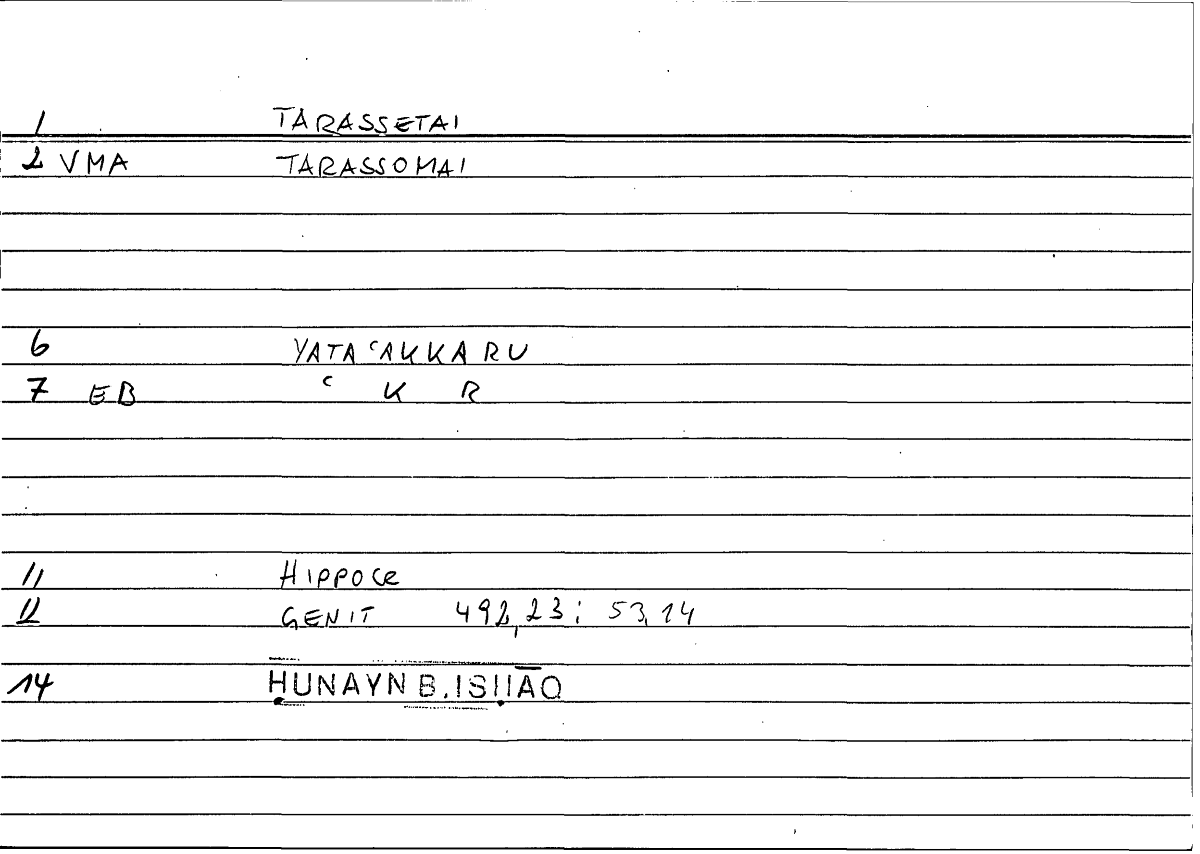 1 TARASSETAI
2 VMA TARASSOMAI
6 YATAʿAKKARU
7 EB ʿ K R
11 HIPPOCR
12 GENIT 492,23; 53,14
14 ḤUNAYN B. ISḤĀQ